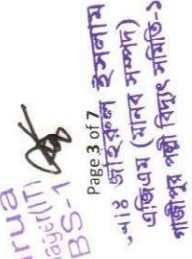 rua
ager(IT)
BS-1
Page 3 of 7
মোঃ জহিরুল ইসলাম
এজিএম (মানব সম্পদ)
গাজীপুর পল্লী বিদ্যুৎ সমিতি-১